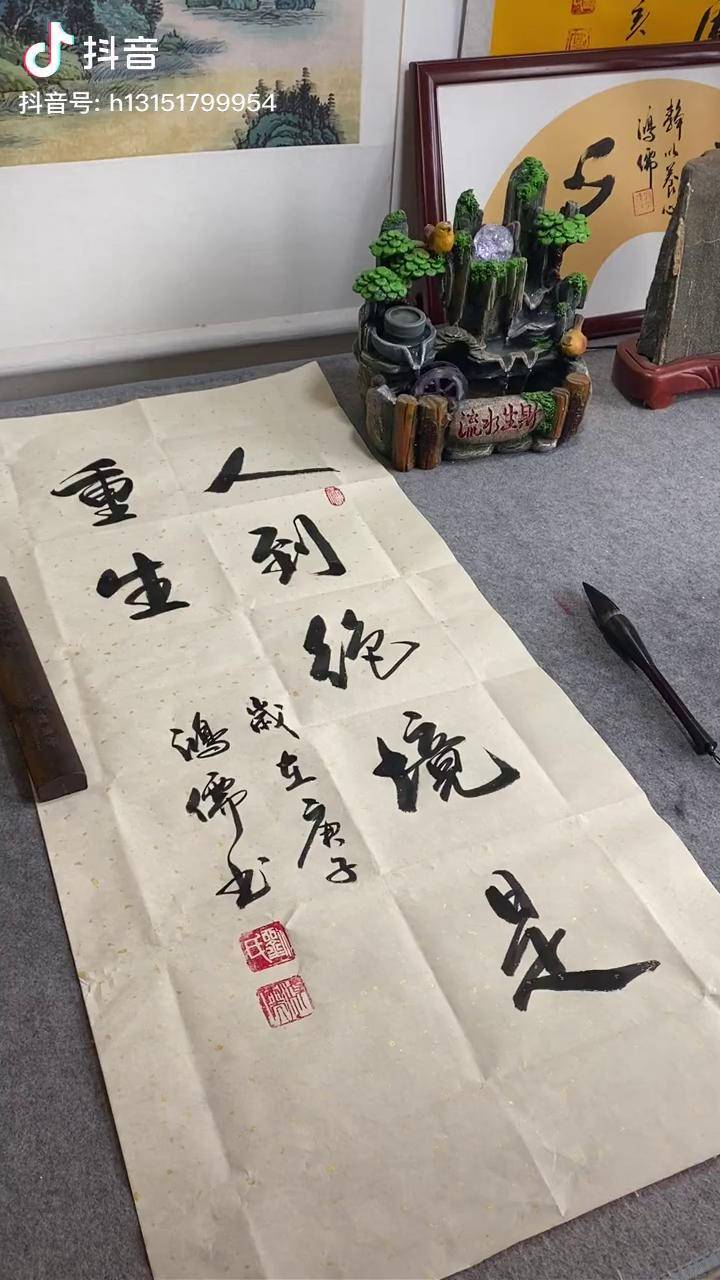 抖音
抖音号: h13151799954
静以养心
鸿儒
流水生财
人到绝境是
重生
岁在庚子
鸿儒书